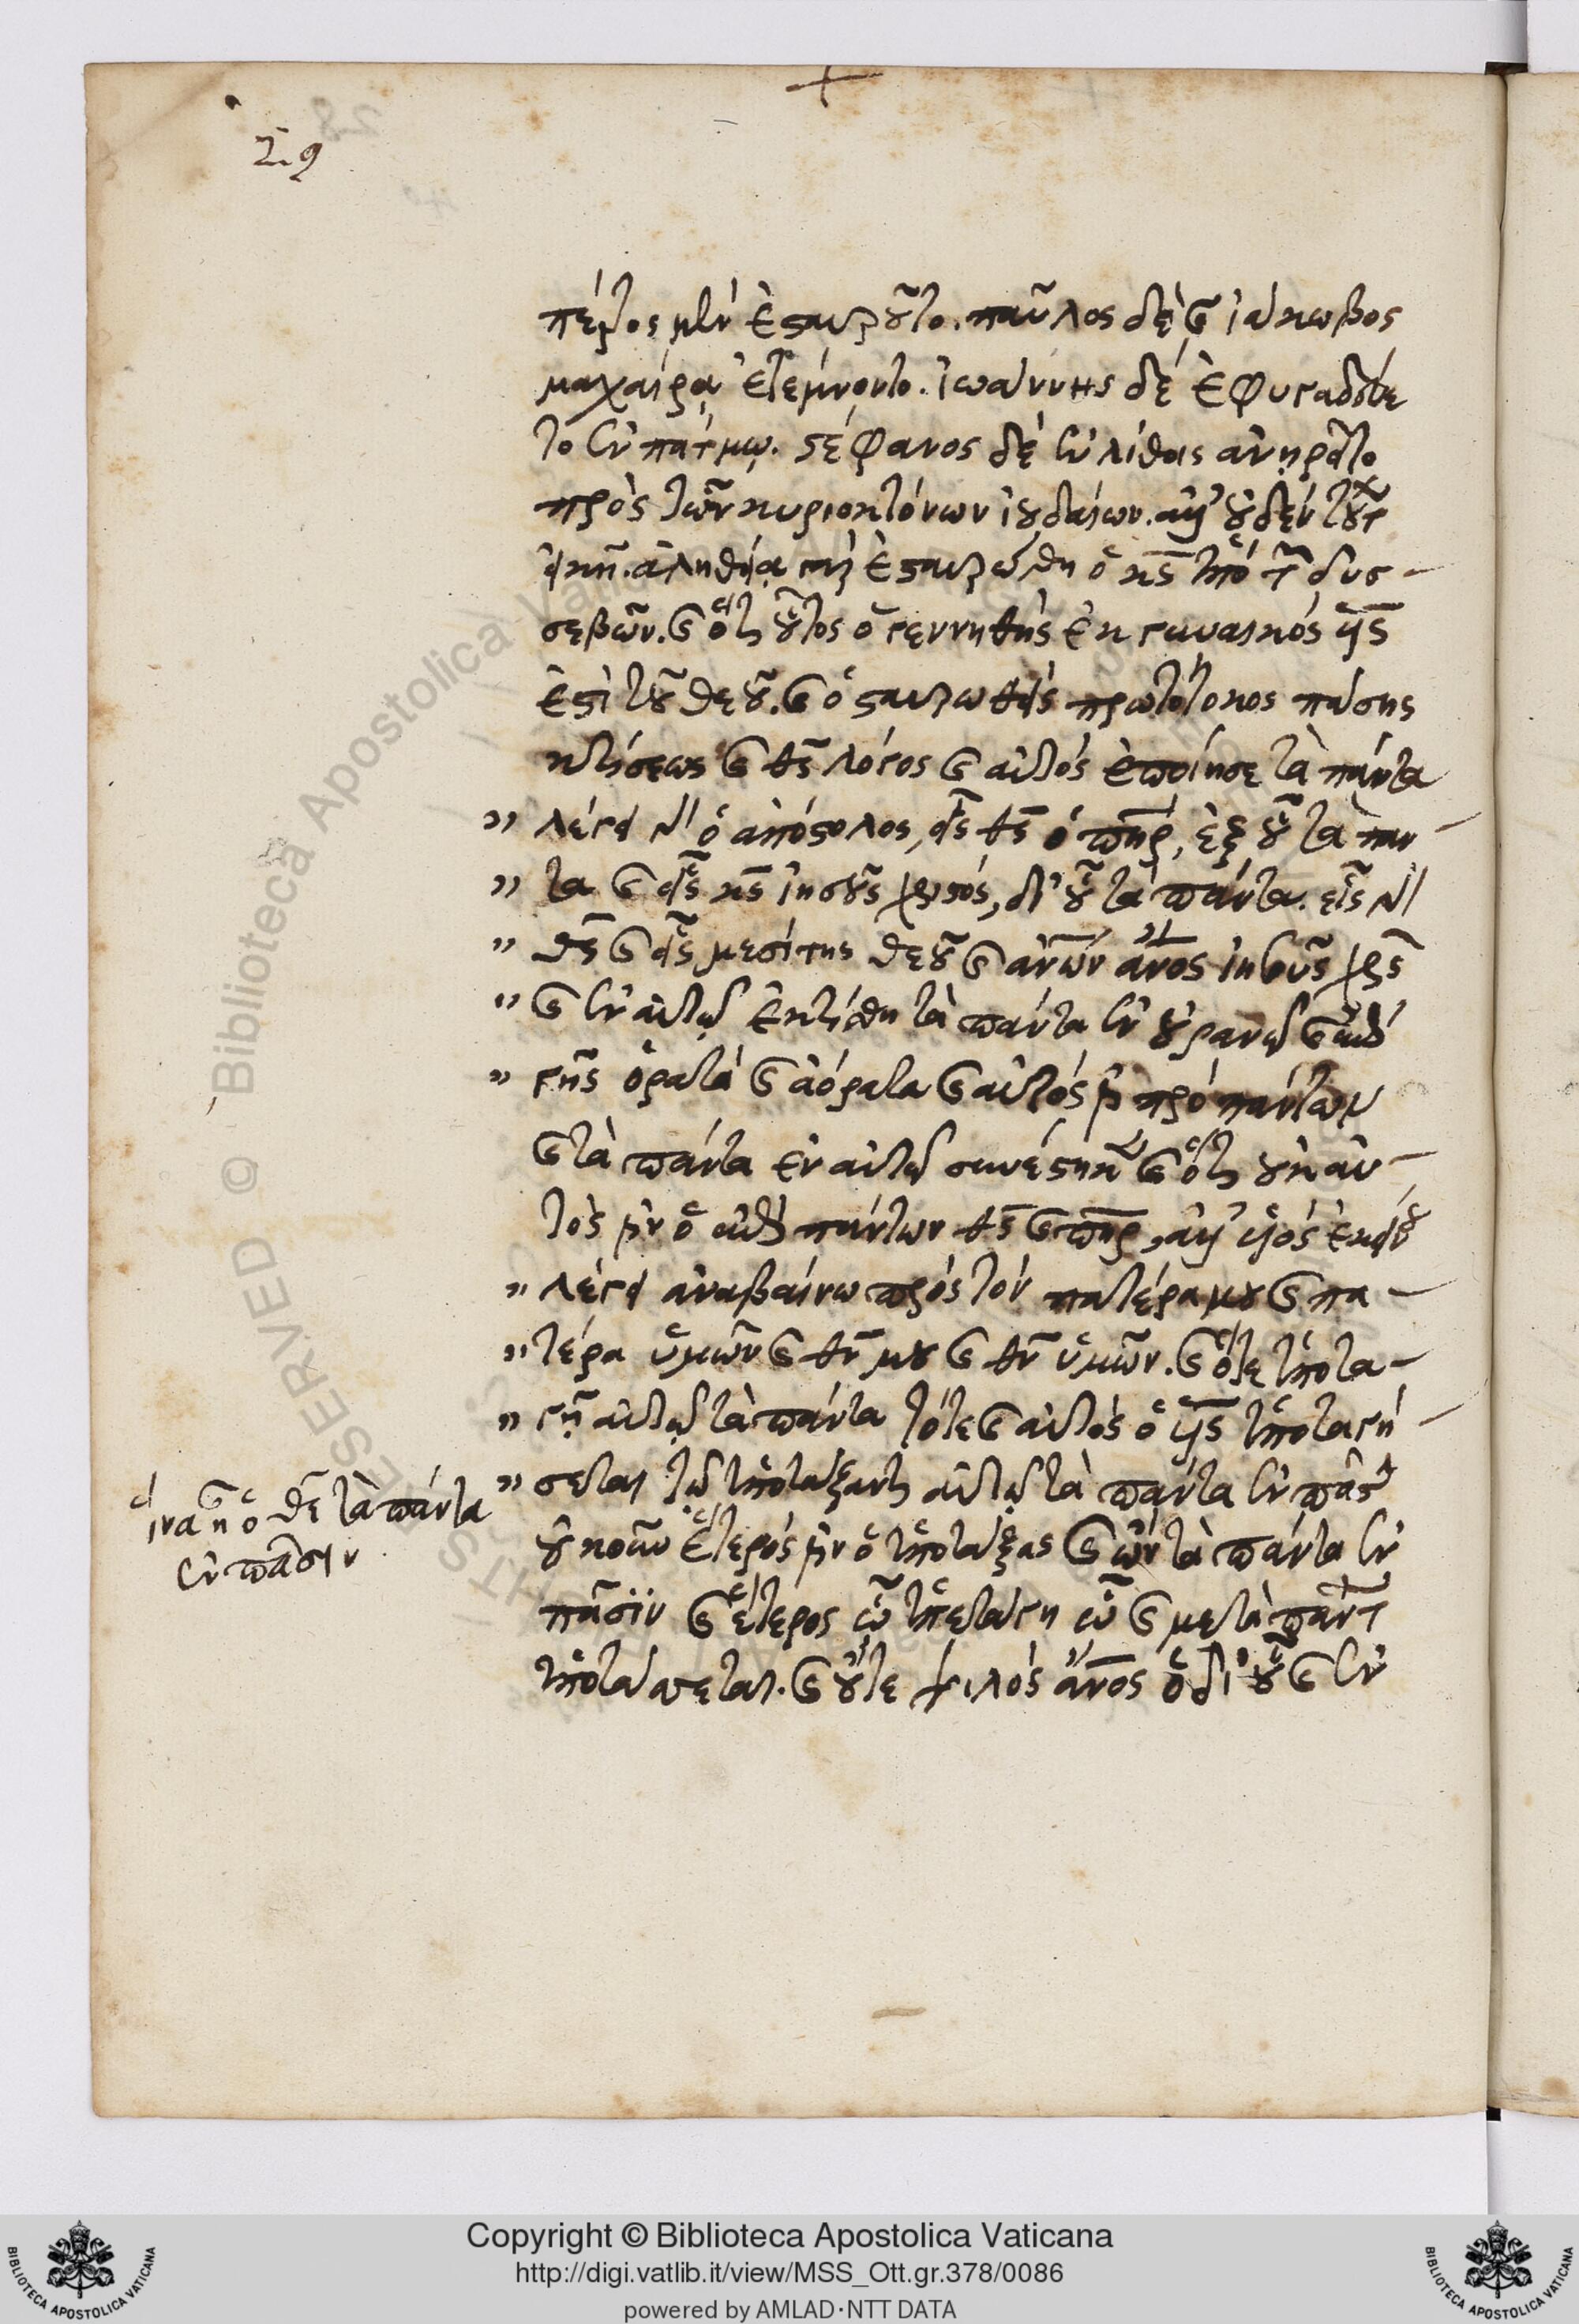 29
πέτρος μὲν ἐσταυροῦτο. παῦλος δὲ καὶ ἰάκωβος
μαχαίρᾳ ἐτέμνοντο. ἰωάννης δὲ ἐφυγαδεύε
το ἐν πάτμῳ. στέφανος δὲ ἐν λίθοις ἀνῃρεῖτο
πρὸς τῶν κυριοκτόνων ἰουδαίων. ἀλλ' οὐδὲν τούτων
εἰκῆ. ἀληθείᾳ γὰρ ἐσταυρώθη ὁ κς ὑπὸ τῶν δυσ
σεβῶν. καὶ ὅτι οὗτος ὁ γεννηθεὶς ἐκ γυναικὸς υἱς
ἐστὶ τοῦ θεοῦ. καὶ ὁ σταυρωθεὶς πρωτότοκος πάσης
κτίσεως καὶ θς λόγος καὶ αὐτὸς ἐποίησε τὰ πάντα
" λέγει γὰρ ὁ ἀπόστολος, εἷς θς ὁ πηρ, ἐξ οὗ τὰ παν
" τα καὶ εἷς κς ἰησοῦς χριστός, δι' οὗ τὰ πάντα. εἷς γὰρ
" θς καὶ εἷς μεσίτης θεοῦ καὶ ἀνων ἀνος ἰησοῦς χρς
" καὶ ἐν αὐτῷ ἐκτίσθη τὰ πάντα ἐν οὐρανῷ καὶ ἐπὶ
" γῆς ὁρατὰ καὶ ἀόρατα καὶ αὐτός ἐστι πρὸ πάντων
καὶ τὰ πάντα ἐν αὐτῷ συνέστηκεν καὶ ὅτι οὐκ αὐ
τός ἐστιν ὁ ἐπὶ πάντων θς καὶ πηρ, ἀλλ' υἱὸς ἐκείνου
" λέγει ἀναβαίνω πρὸς τὸν πατέρα μου καὶ πα
" τέρα ὑμῶν καὶ θν μου καὶ θν ὑμῶν. καὶ ὅτε ὑποτα
" γῇ αὐτῷ τὰ πάντα τότε καὶ αὐτὸς ὁ υἱς ὑποταγή
" σεται τῷ ὑποτάξαντι αὐτῷ τὰ πάντα ἐν πᾶσιν
οὐκοῦν ἕτερός ἐστιν ὁ ὑποτάξας καὶ ὢν τὰ πάντα ἐν
πᾶσιν καὶ ἕτερος ᾧ ὑπετάγη ᾧ καὶ μετὰ πάντων
ὑποτάσσεται. καὶ οὔτε ψιλὸς ἀνος ὁ δι' οὗ καὶ ἐν
ἵνα ᾖ ὁ θς τὰ πάντα
ἐν πᾶσιν
Copyright © Biblioteca Apostolica Vaticana
http://digi.vatlib.it/view/MSS_Ott.gr.378/0086
powered by AMLAD·NTT DATA
BIBLIOTECA APOSTOLICA VATICANA
BIBLIOTECA APOSTOLICA VATICANA